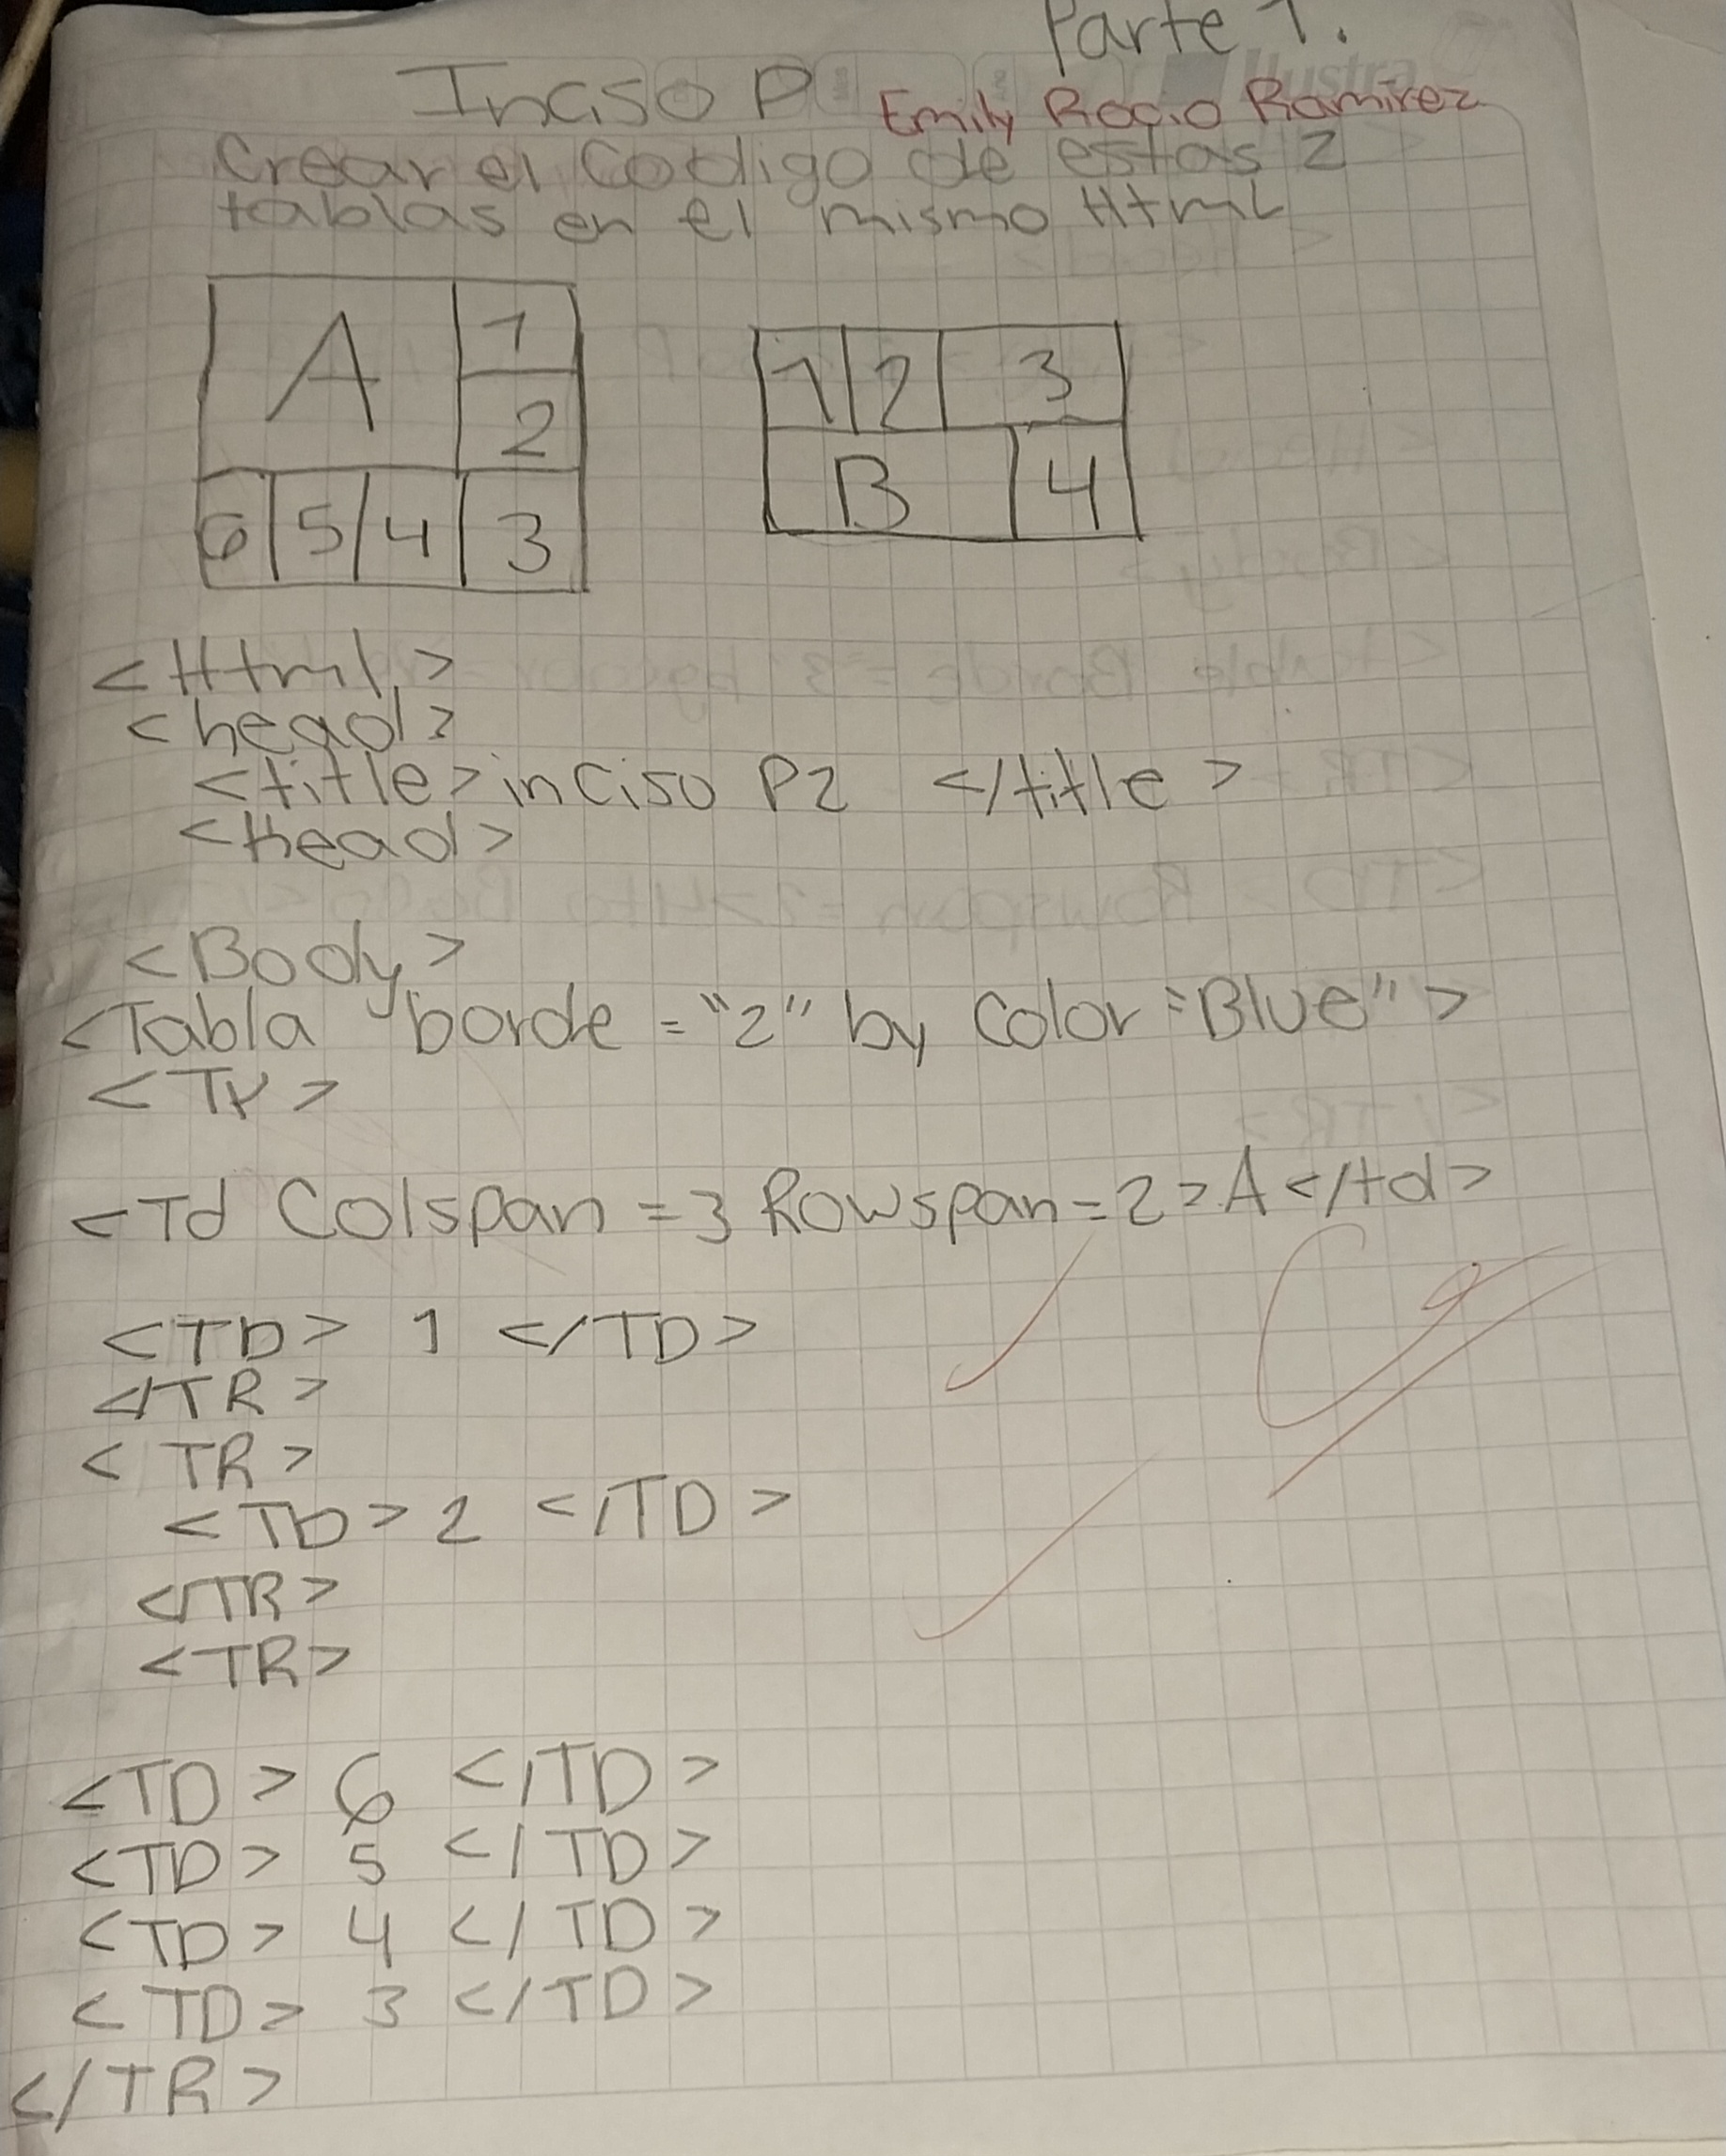 Parte 1.
Inciso P
Emily Rocio Ramirez
Crear el Codigo de estas 2
tablas en el mismo Html
A 1
2
6 5 4 3
1 2 3
B 4
<Html>
<head>
<title> inciso P2 </title>
<Head>
<Body>
<Tabla borde = "2" by Color = Blue">
<Tr>
<Td Colspan = 3 Rowspan = 2> A </td>
<TD> 1 </TD>
</TR>
<TR>
<TD> 2 </TD>
</TR>
<TR>
<TD> 6 </TD>
<TD> 5 </TD>
<TD> 4 </TD>
<TD> 3 </TD>
</TR>